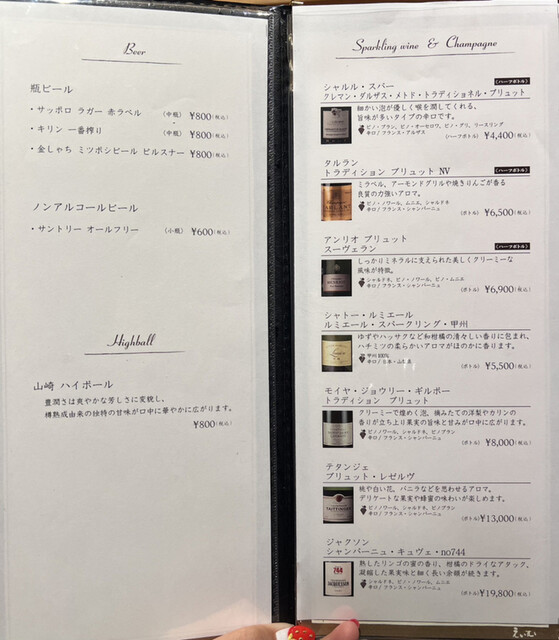 Beer
瓶ビール
・サッポロ ラガー 赤ラベル (中瓶) ¥800(税込)
・キリン 一番搾り (中瓶) ¥800(税込)
・金しゃち ミツボシビール ピルスナー ¥800(税込)
ノンアルコールビール
・サントリー オールフリー (小瓶) ¥600(税込)
Highball
山崎 ハイボール
豊潤さは爽やかな芳しさに変貌し、
樽熟成由来の独特の甘味が口中に華やかに広がります。
¥800(税込)
Sparkling wine & Champagne
シャルル・スパー (ハーフボトル)
クレマン・ダルザス・メトド・トラディショネル・ブリュット
細かい泡が優しく喉を潤してくれる、
旨味が多いタイプの辛口です。
ピノ・ブラン、ピノ・オーセロワ、ピノ・グリ、リースリング
辛口/フランス・アルザス (ハーフボトル) ¥4,400(税込)
タルラン
トラディション ブリュット NV (ハーフボトル)
ミラベル、アーモンドグリルや焼きりんごが香る
良質の力強いアロマ。
ピノ・ノワール、ムニエ、シャルドネ
辛口/フランス・シャンパーニュ (ボトル) ¥6,500(税込)
アンリオ ブリュット (ハーフボトル)
スーヴェラン
しっかりミネラルに支えられた美しくクリーミーな
風味が特徴。
シャルドネ、ピノ・ノワール、ピノ・ムニエ
辛口/フランス・シャンパーニュ (ボトル) ¥6,900(税込)
シャトー・ルミエール
ルミエール・スパークリング・甲州
ゆずやハッサクなど和柑橘の清々しい香りに包まれ、
ハチミツの柔らかいアロマがほのかに香ります。
甲州100%
辛口/日本・山梨県 (ボトル) ¥5,500(税込)
モイヤ・ジョウリー・ギルボー
トラディション ブリュット
クリーミーで煌めく泡、摘みたての洋梨やカリンの
香りが立ち上り果実の旨味と甘みが口中に広がります。
ピノノワール、シャルドネ、ピノブラン
辛口/フランス・シャンパーニュ (ボトル) ¥8,000(税込)
テタンジェ
ブリュット・レゼルヴ
桃や白い花、バニラなどを思わせるアロマ。
デリケートな果実や蜂蜜の味わいが楽しめます。
ピノノワール、シャルドネ、ピノブラン
辛口/フランス・シャンパーニュ (ボトル) ¥13,000(税込)
ジャクソン
シャンパーニュ・キュヴェ・no744
熟したリンゴの蜜の香り、柑橘のドライなアタック、
凝縮した果実味と細く長い余韻が続きます。
シャルドネ、ピノ・ノワール、ピノ・ムニエ
辛口/フランス・シャンパーニュ (ボトル) ¥19,800(税込)